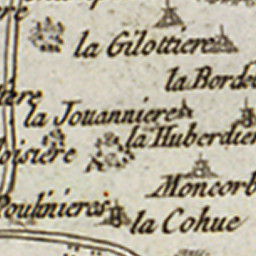 la Gilottiere
la Borde
la Jouanniere
la Huberdier
loisiere
Moncorb
Poulinieres
la Cohue